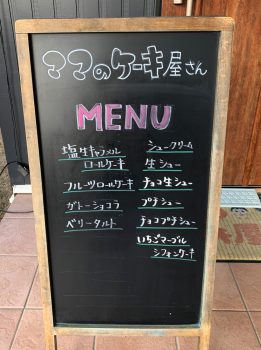 ママのケーキ屋さん
MENU
塩生キャラメル
ロールケーキ
フルーツロールケーキ
ガトーショコラ
ベリータルト
シュークリーム
生シュー
チョコ生シュー
プチシュー
チョコプチシュー
いちごマーブル
シフォンケーキ